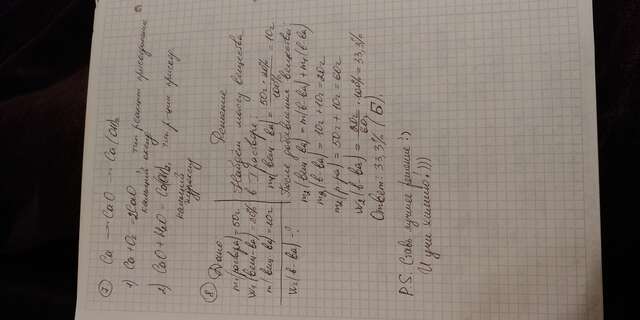 ⑦ Ca → CaO → Ca(OH)₂
1) Ca + O₂ = 2CaO тип реакции присоединение
кальций оксид
2) CaO + H₂O = Ca(OH)₂, тип р-ции присоед.
кальций
⑧ Дано
m₁(раствора) = 50г
W₁(вещ-ва) = 20%
m(вещ-ва) = 10г
W₂(в-ва) - ?
Решение
Найдём массу вещества
в 1 растворе:
m₁(вещ-ва) = 50г · 20% / 100% = 10г
После добавления вещества:
m₂(вещ-ва) = m(в-ва) + m₁(в-ва)
m₂(в-ва) = 10г + 10г = 20г
m₂(р-ра) = 50г + 10г = 60г
W₂(в-ва) = 20г / 60г · 100% = 33,3%
Ответ: 33,3% (Б).
P.S. Ставь лучшее решение :)
И учи химию :)))